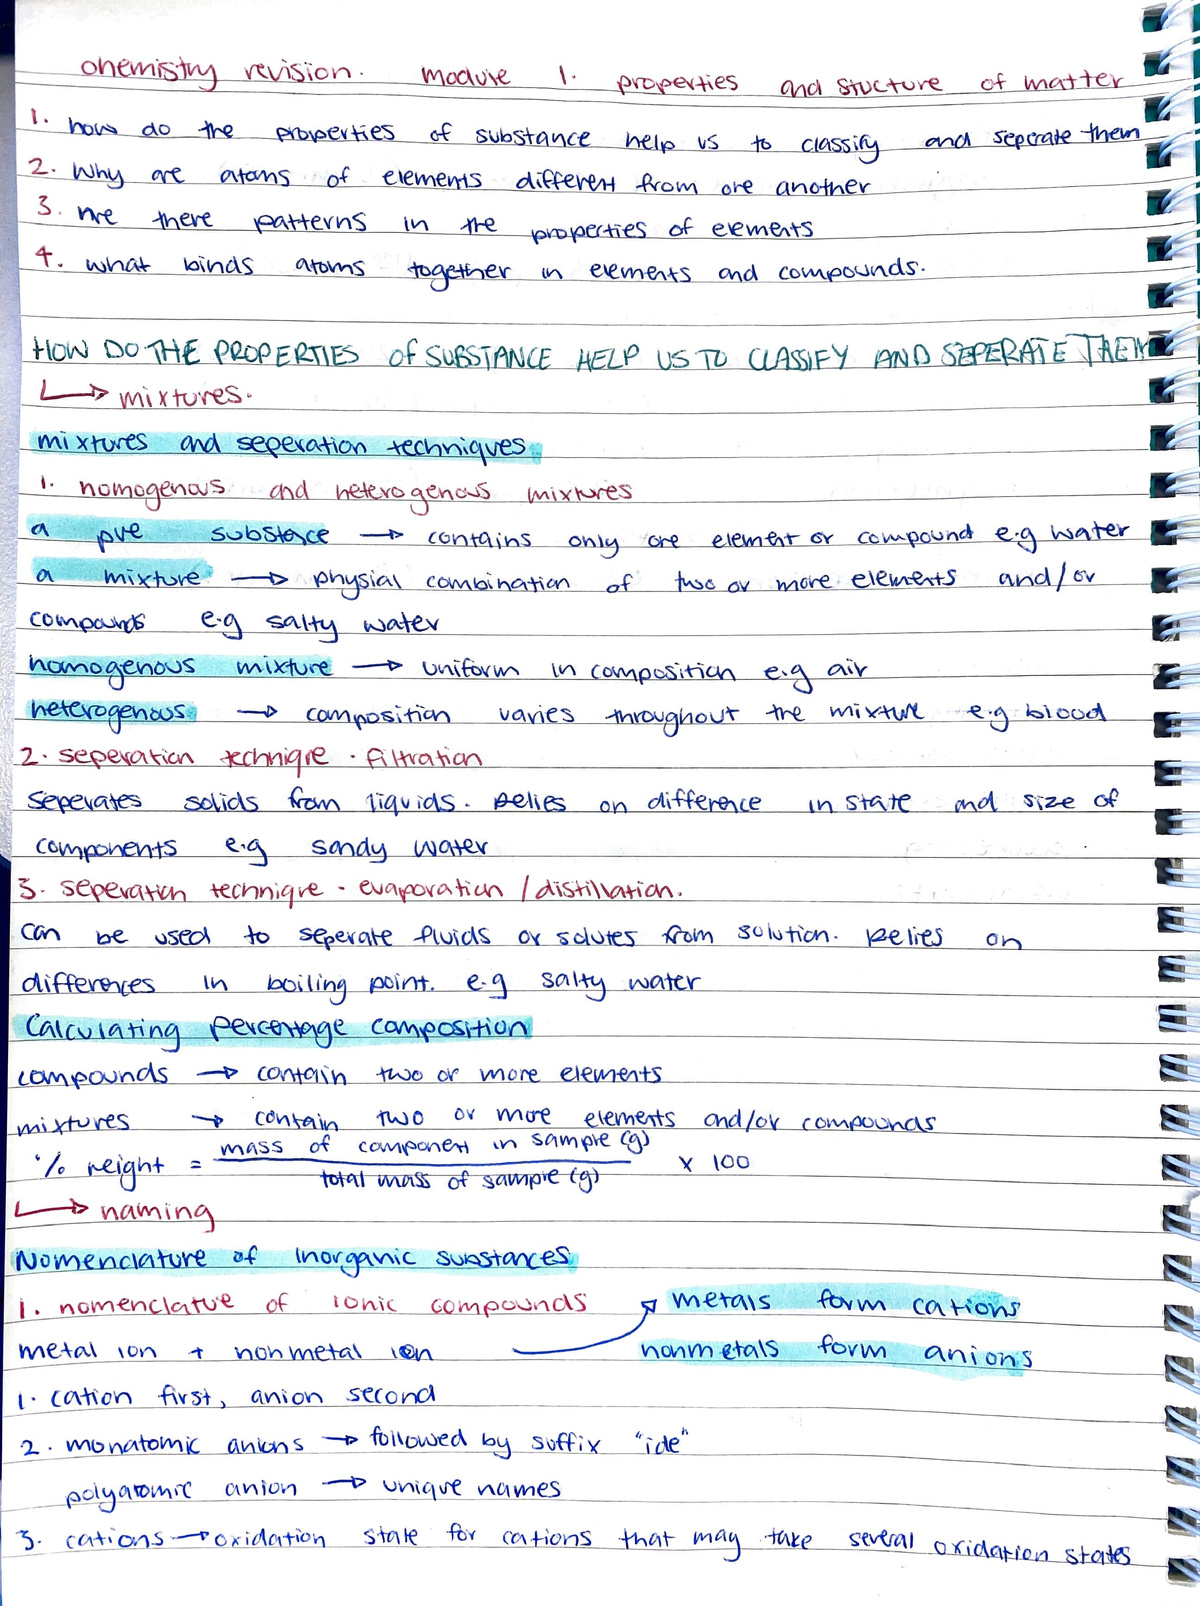 chemistry revision. module 1. properties and stucture of matter
1. how do the properties of substance help us to classify and seperate them
2. Why are atoms of elements different from one another
3. Are there patterns in the properties of elements
4. what binds atoms together in elements and compounds.
HOW DO THE PROPERTIES of SUBSTANCE HELP US TO CLASSIFY AND SEPERATE THEM
↳ mixtures.
mixtures and seperation techniques.
1. homogenous and heterogenous mixtures
a pure substance → contains only one element or compound e.g water
a mixture → physial combination of two or more elements and/or
compounds e.g salty water
homogenous mixture → uniform in composition e.g air
heterogenous → composition varies throughout the mixture e.g blood
2. seperation technique . filtration
seperates solids from liquids. Relies on difference in state and size of
components e.g sandy water
3. seperation technique - evaporation / distillation.
can be used to seperate fluids or solutes from solution. Relies on
differences in boiling point. e.g salty water
Calculating percentage composition
compounds → contain two or more elements
mixtures → contain two or more elements and/or compounds
% weight = mass of component in sample (g) / total mass of sample (g) x 100
↳ naming
Nomenclature of inorganic substances
1. nomenclature of ionic compounds ↗ metals form cations
metal ion + nonmetal ion nonmetals form anions
1. cation first, anion second
2. monatomic anions → followed by suffix "ide"
polyatomic anion → unique names
3. cations → oxidation state for cations that may take several oxidation states